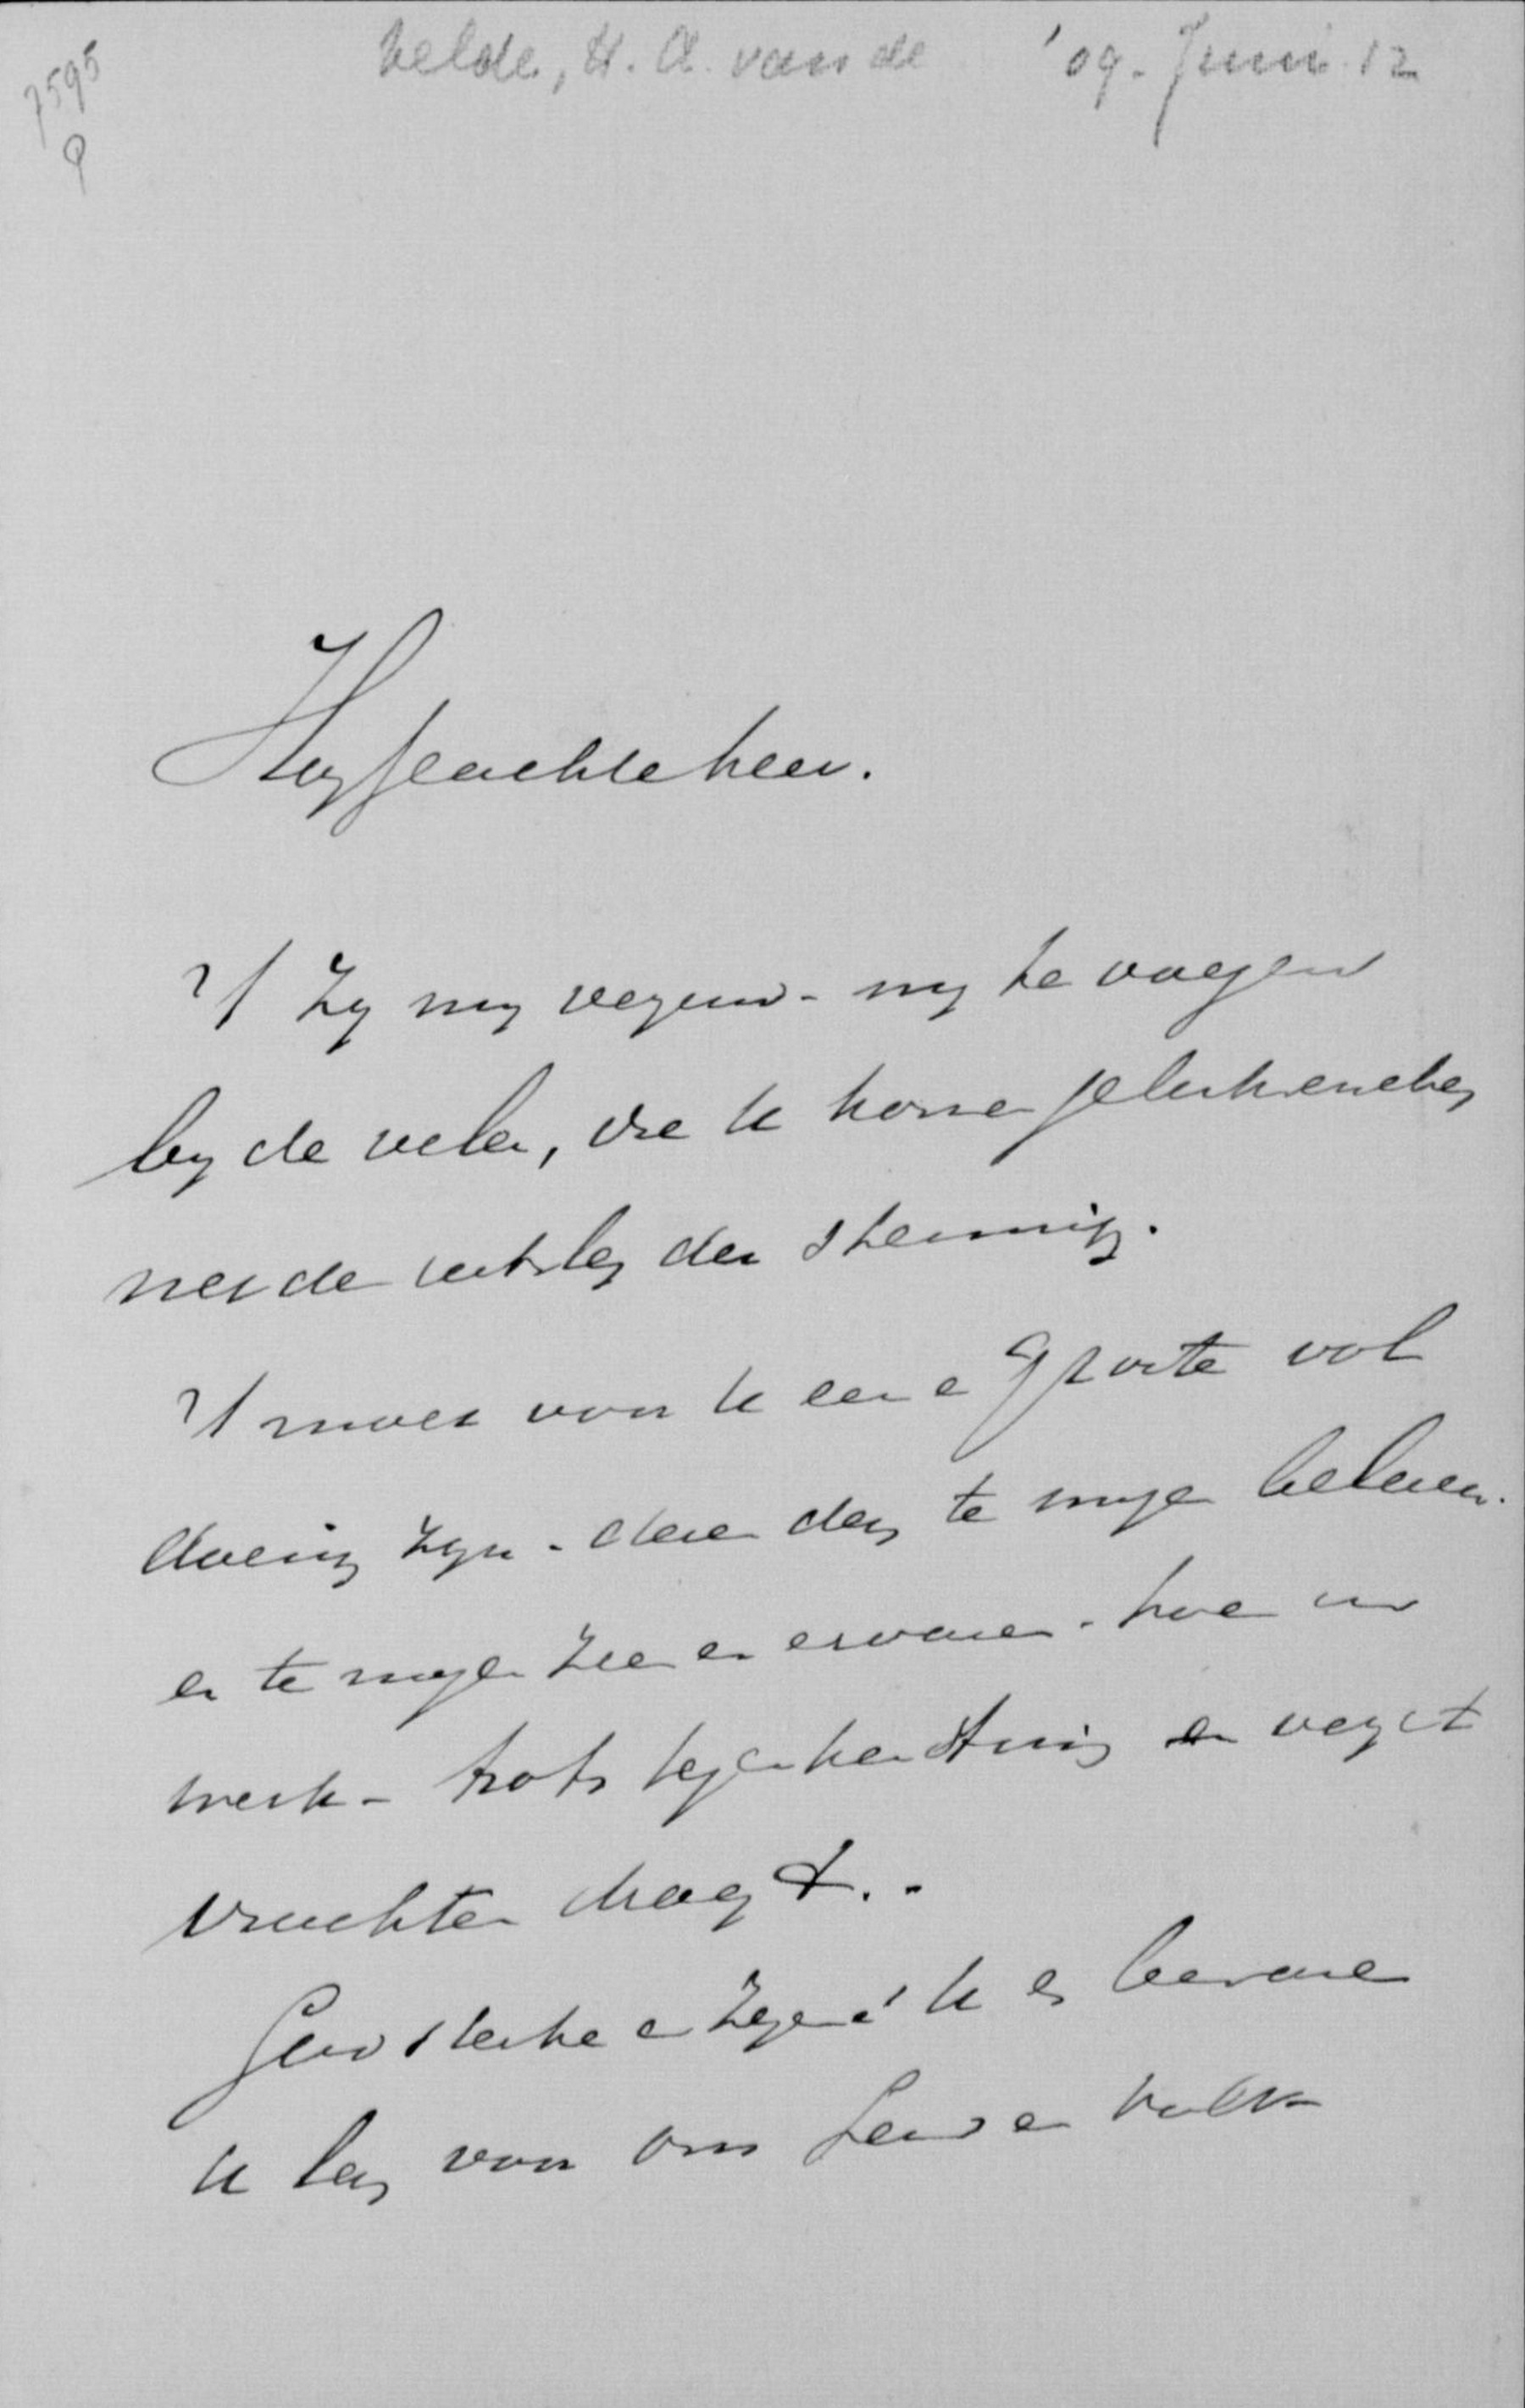 7595
Velde, H. A. van de '09. Juni 12
Hooggeachte heer.
't Zy my vergund - my te voegen
by de velen, die U komen gelukwenschen
met de uitslag der stemming.
't moet voor U een groote vol
doening zyn - deze dag te mogen beleven.
en te mogen zien en ervaren - hoe uw
werk - trots tegenkanting en verzet
vruchten draagt..
God sterke en zegene U en beware
U lang voor ons Land en Volk